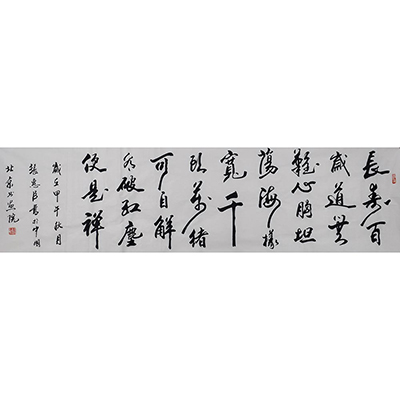 長壽百
歲道無
難心胸坦
蕩海樣
寬千
頭萬緒
可自解
看破紅塵
便是禪
歲在甲午秋月
張惠臣書於中國
北京書畫院